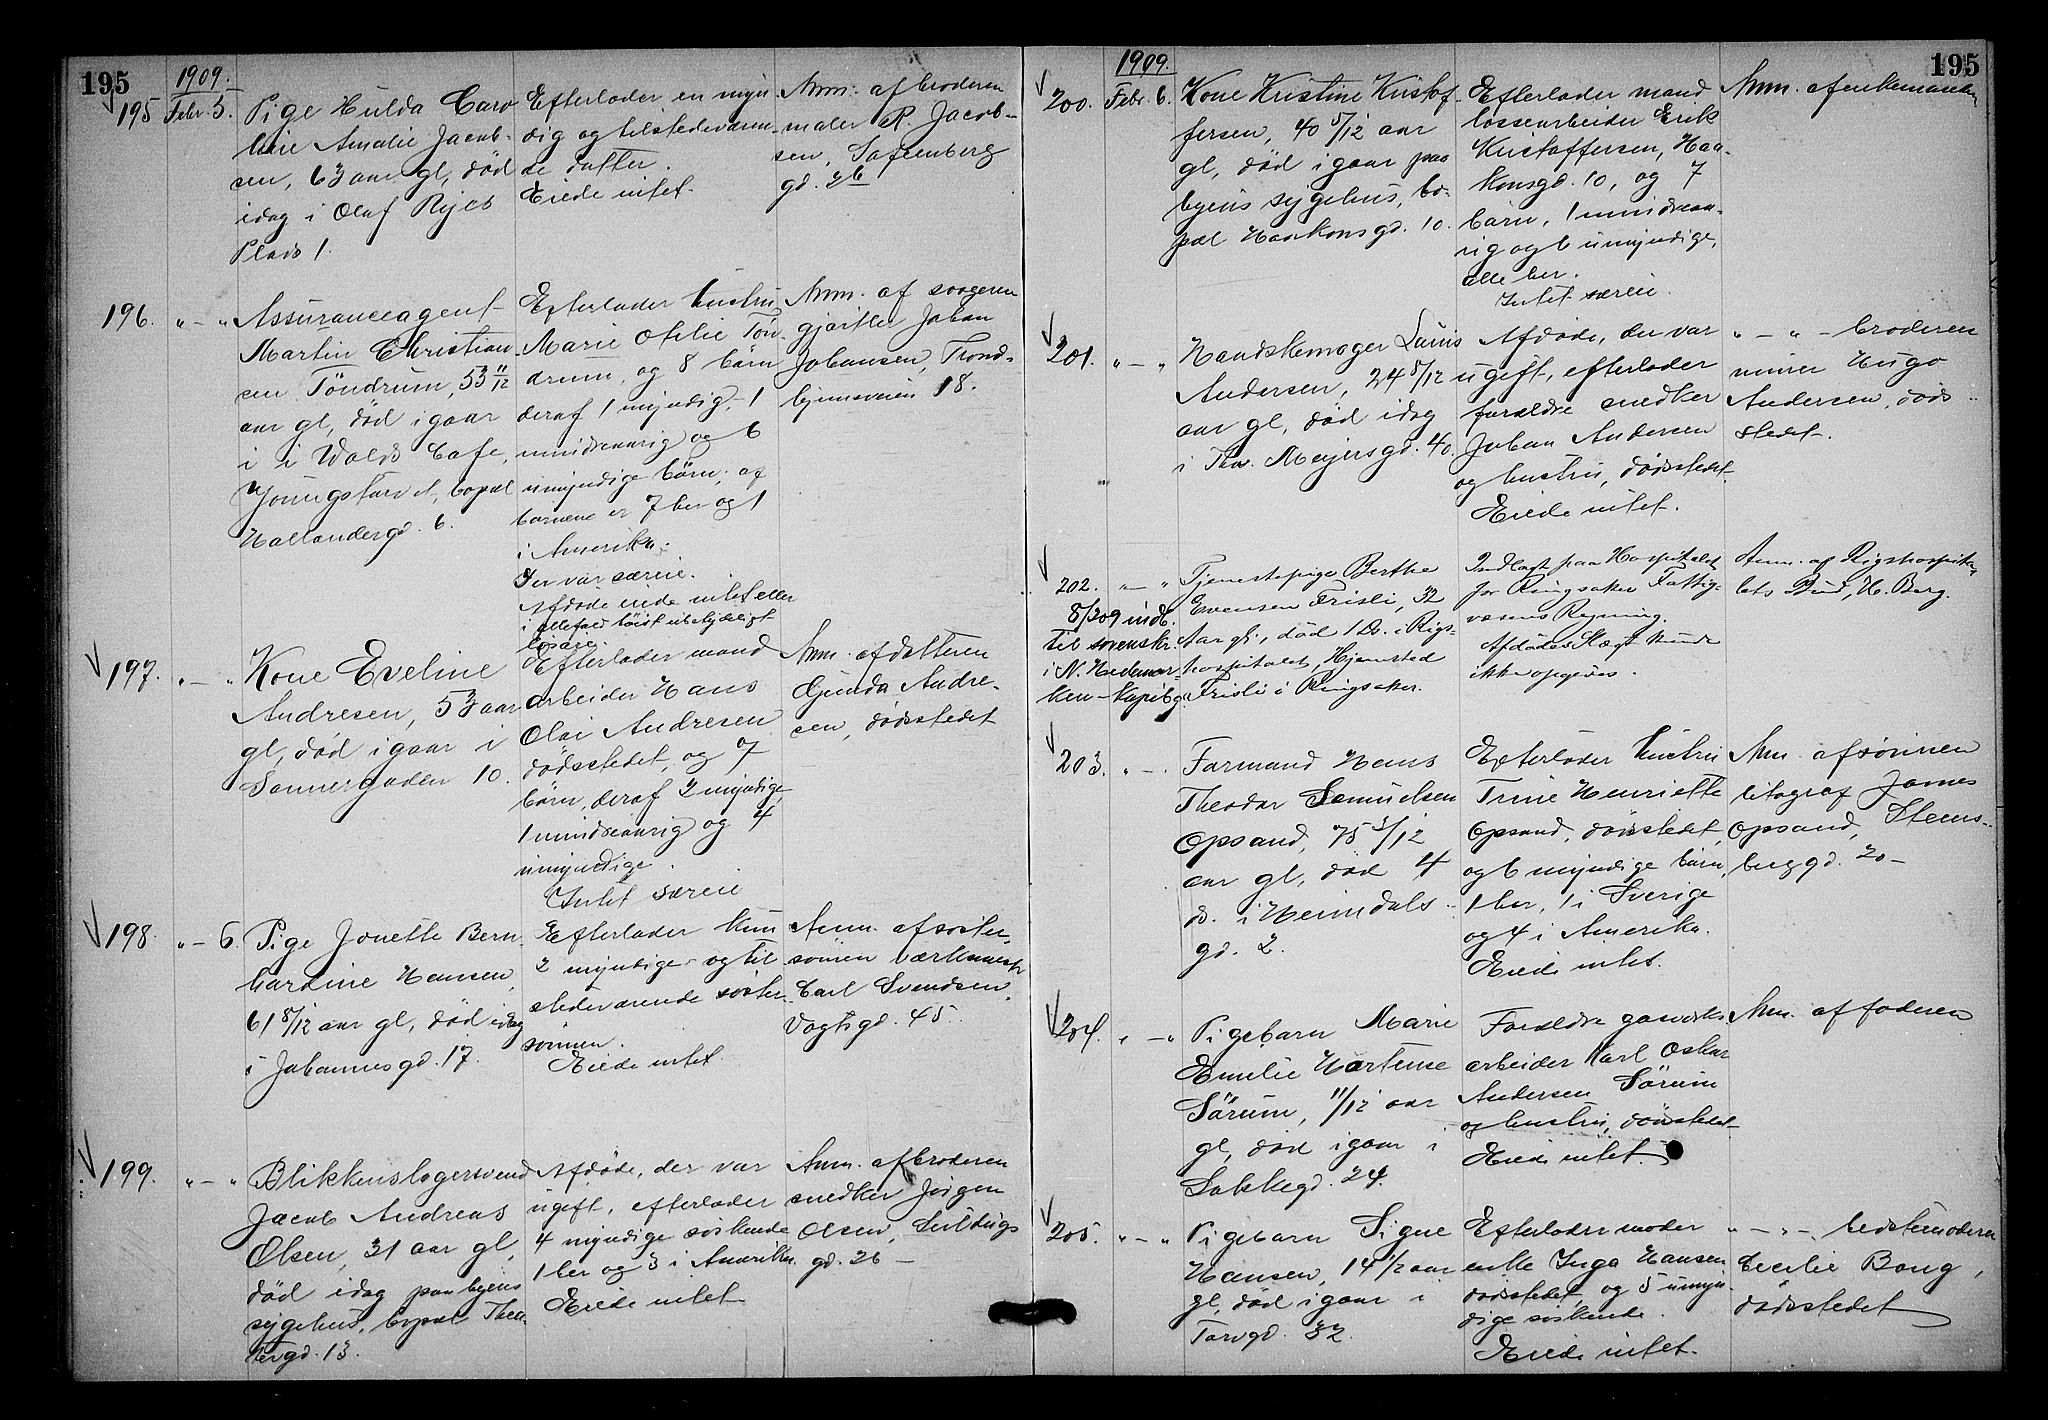 195
1909.
195 Febr. 5.
Pige Hulda Caro
line Amalie Jacob-
sen, 63 aar gl, död
idag i Olaf Ryes
Plads 1.
Efterlader en myn-
dig og tilstedeværen-
de datter.
Eiede intet.
Anm. af broderen
maler R. Jacob-
sen, Sofienberg
gd. 26
196. " - "
Assuranceagent
Martin Christian-
sen Töndrum, 53 11/12
aar gl, död igaar
i Café,
Youngstorvet, bopæl
Hollendergd. 6.
Efterlader hustru
Marie Ofelie Tön-
drum, og 8 börn
deraf 1 myndig, 1
mindreaarig og 6
umyndige börn; af
börnene er 7 her og 1
i Amerika.
Der var særeie.
Afdöde eiede intet eller
i alfald höist ubetydeligt
lösöre.
Anm. af svogeren
gjörtler Johan
Johansen, Trond-
hjemsveien 18.
197. " - "
Kone Eveline
Andresen, 53 aar
gl, död igaar i
Sannergaden 10.
Efterlader mand
arbeider Hans
Olai Andresen
dödsstedet, og 7
börn, deraf 2 myndige
1 mindreaarig og 4
umyndige.
Intet særeie
Anm. af datteren
Gunda Andre-
sen, dödsstedet
198. " - 6.
Pige Jonette Bern-
hardine Hansen,
61 8/12 aar gl, död idag
i Johannesgd. 17.
Efterlader kun
2 myndige og til
stedeværende söster-
sönner.
Eiede intet.
Anm. af söster-
sönnen værkmester
Carl Svendsen,
Vogtsgd. 45.
199. " - "
Blikkenslagersvend
Jacob Andreas
Olsen, 31 aar gl,
död idag paa byens
sygehus, bopæl Thea-
tergd. 13.
Afdöde, der var
ugift, efterlader
4 myndige söskende
1 her og 3 i Amerika.
Eiede intet
Anm. af broderen
snedker Jörgen
Olsen,
gd. 26 -
195
1909.
200. Febr. 6.
Kone Kristine Kristof-
fersen, 40 5/12 aar
gl, död igaar paa
byens sygehus, bo-
pæl Haakonsgd. 10.
Efterlader mand
lossearbeider Erik
Kristoffersen, Haa-
konsgd. 10, og 7
börn, 1 mindreaa-
rig og 6 umyndige,
alle her.
Intet særeie.
Anm. af enkemanden
201. " - "
Handskemager Lauis
Andersen, 24 8/12
aar gl, död idag
i Thv. Meyersgd. 40.
Afdöde, der var
ugift, efterlader
forældre snedker
Johan Andersen
og hustru, dödsstedet.
Eiede intet.
" - " - broderen
murer Hugo
Andersen, döds-
stedet.
202. " - "
8/2 09 indb.
til sorenskr.
i N. Hedemar-
ken - kopibg
Tjenestepige Berthe
Evensen Frisli, 32
Aar gl., död 1 ds. i Rigs-
hospitalet, Hjemsted
Frisli i Ringsaker.
Indlagt paa Hospitalet
for Ringsaker Fattig-
væsens Regning.
Afdödes Slægt kunde
ikke opgives.
Anm. af Rigshospita-
lets Bud, H. Berg.
203. " - "
Formand Hans
Theodor Samuelsen
Opsand, 75 3/12
aar gl, död 4
ds. i Heimdals-
gd. 2.
Efterlader hustru
Trine Henriette
Opsand, dödsstedet
og 6 myndige börn,
1 her, 1 i Sverige
og 4 i Amerika.
Eiede intet.
Anm. af sönnen
litograf James
Opsand, Stens-
berggd. 20 -
204. " - "
Pigebarn Marie
Emilie Hortense
Sörum, 11/12 aar
gl, död igaar i
Sökkegd. 24.
Forældre gasverks
arbeider Karl Oskar
Andersen Sörum
og hustru, dödsstedet.
Eiede intet.
Anm. af faderen
205. " - "
Pigebarn Signe
Hansen, 14 1/2 aar
gl, död igaar i
Torvgd. 32.
Efterlader moder
enke Inga Hansen
dödsstedet, og 5 umyn-
dige söskende.
Eiede intet.
" - " - bedstemoderen
Cecilie Bang,
dödsstedet